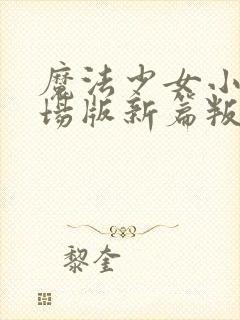 魔法少女小
场版新篇叛
黎奎